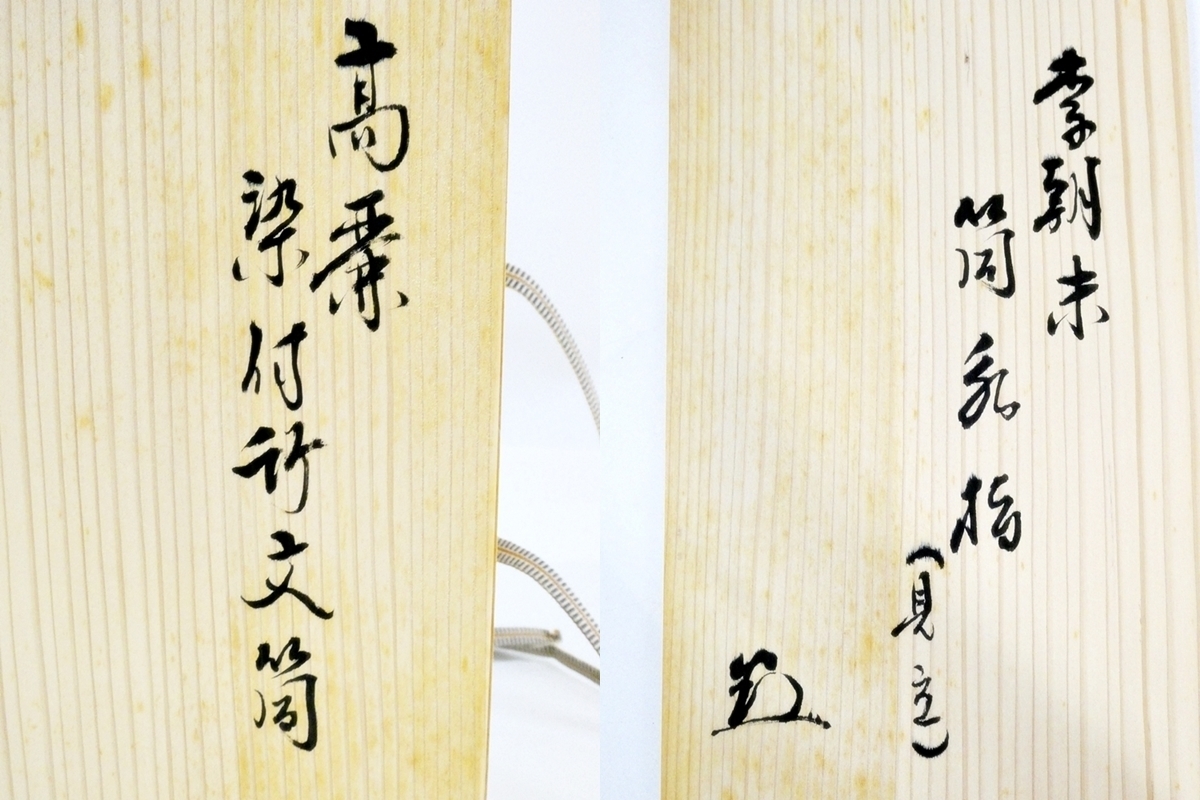 高麗
染付竹文筒
李朝末
筒
見立